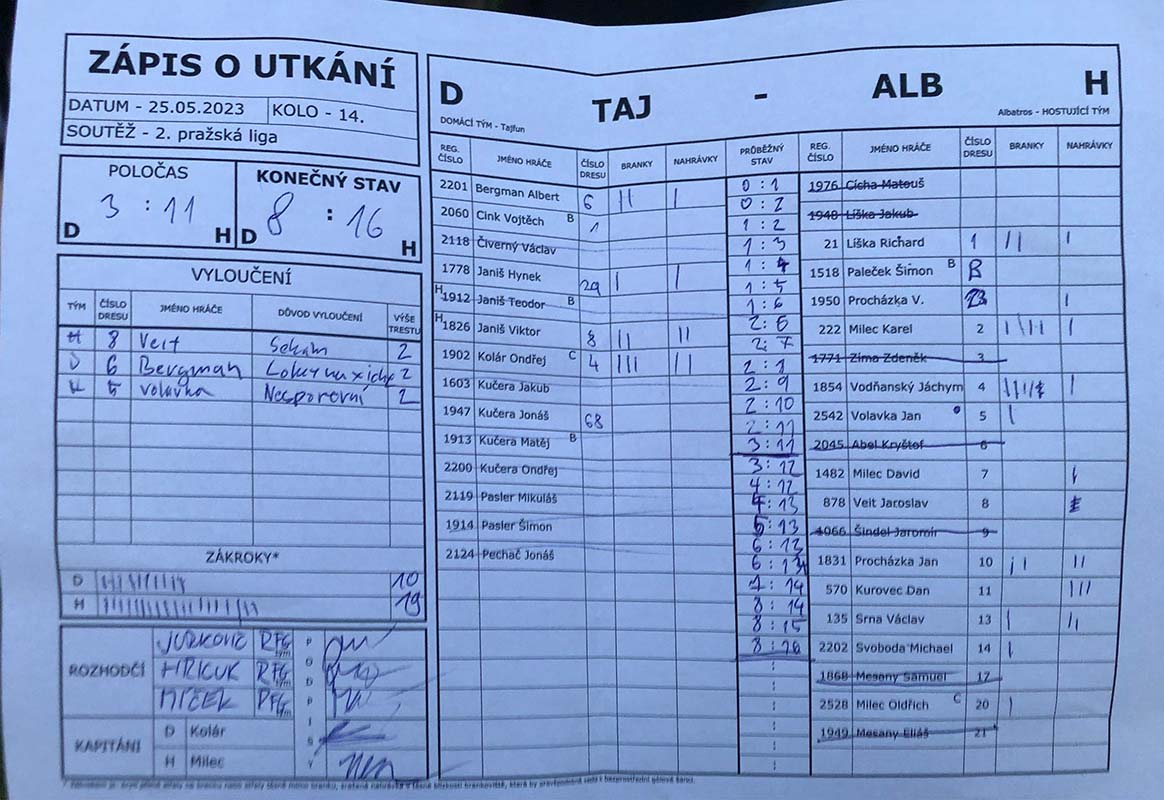 ZÁPIS O UTKÁNÍ
DATUM - 25.05.2023 KOLO - 14.
SOUTĚŽ - 2. pražská liga
POLOČAS
3 : 11
D H
KONEČNÝ STAV
8 : 16
D H
VYLOUČENÍ
TÝM ČÍSLO DRESU JMÉNO HRÁČE DŮVOD VYLOUČENÍ VÝŠE TRESTU
H 8 Veit Sekám 2
D 6 Bergman 2
H 5 Volavka Nesportovní 2
ZÁKROKY*
D 10
H 19
ROZHODČÍ
JURKOVIČ RFG
HRICUK RFG
MÍČEK RFG
PODPISY
KAPITÁNI
D Kolár
H Milec
D TAJ - ALB H
DOMÁCÍ TÝM - Tajfun Albatros - HOSTUJÍCÍ TÝM
REG. ČÍSLO JMÉNO HRÁČE ČÍSLO DRESU BRANKY NAHRÁVKY
2201 Bergman Albert 6 || |
2060 Cink Vojtěch B 1
2118 Čiverný Václav
1778 Janiš Hynek 29 | |
H 1912 Janiš Teodor B
H 1826 Janiš Viktor 8 || ||
1902 Kolár Ondřej C 4 ||| ||
1603 Kučera Jakub
1947 Kučera Jonáš 68
1913 Kučera Matěj B
2200 Kučera Ondřej
2119 Pasler Mikuláš
1914 Pasler Šimon
2124 Pechač Jonáš
PRŮBĚŽNÝ STAV
0 : 1
0 : 2
1 : 2
1 : 3
1 : 4
1 : 5
1 : 6
2 : 6
2 : 7
2 : 9
2 : 10
2 : 11
3 : 11
3 : 12
4 : 12
4 : 13
5 : 13
6 : 13
7 : 14
8 : 14
8 : 15
8 : 16
REG. ČÍSLO JMÉNO HRÁČE ČÍSLO DRESU BRANKY NAHRÁVKY
1976 Cícha Matouš
1948 Líška Jakub
21 Líška Richard 1 || |
1518 Paleček Šimon B
1950 Procházka V. |
222 Milec Karel 2 |||| |
1771 Zima Zdeněk 3
1854 Vodňanský Jáchym 4 |
2542 Volavka Jan 5 |
2045 Abel Kryštof 6
1482 Milec David 7
878 Veit Jaroslav 8
1066 Šindel Jaromír 9
1831 Procházka Jan 10 || ||
570 Kurovec Dan 11 |||
135 Srna Václav 13 | ||
2202 Svoboda Michael 14 |
1868 Mesany Samuel 17
2528 Milec Oldřich C 20 |
1949 Mesany Eliáš 21